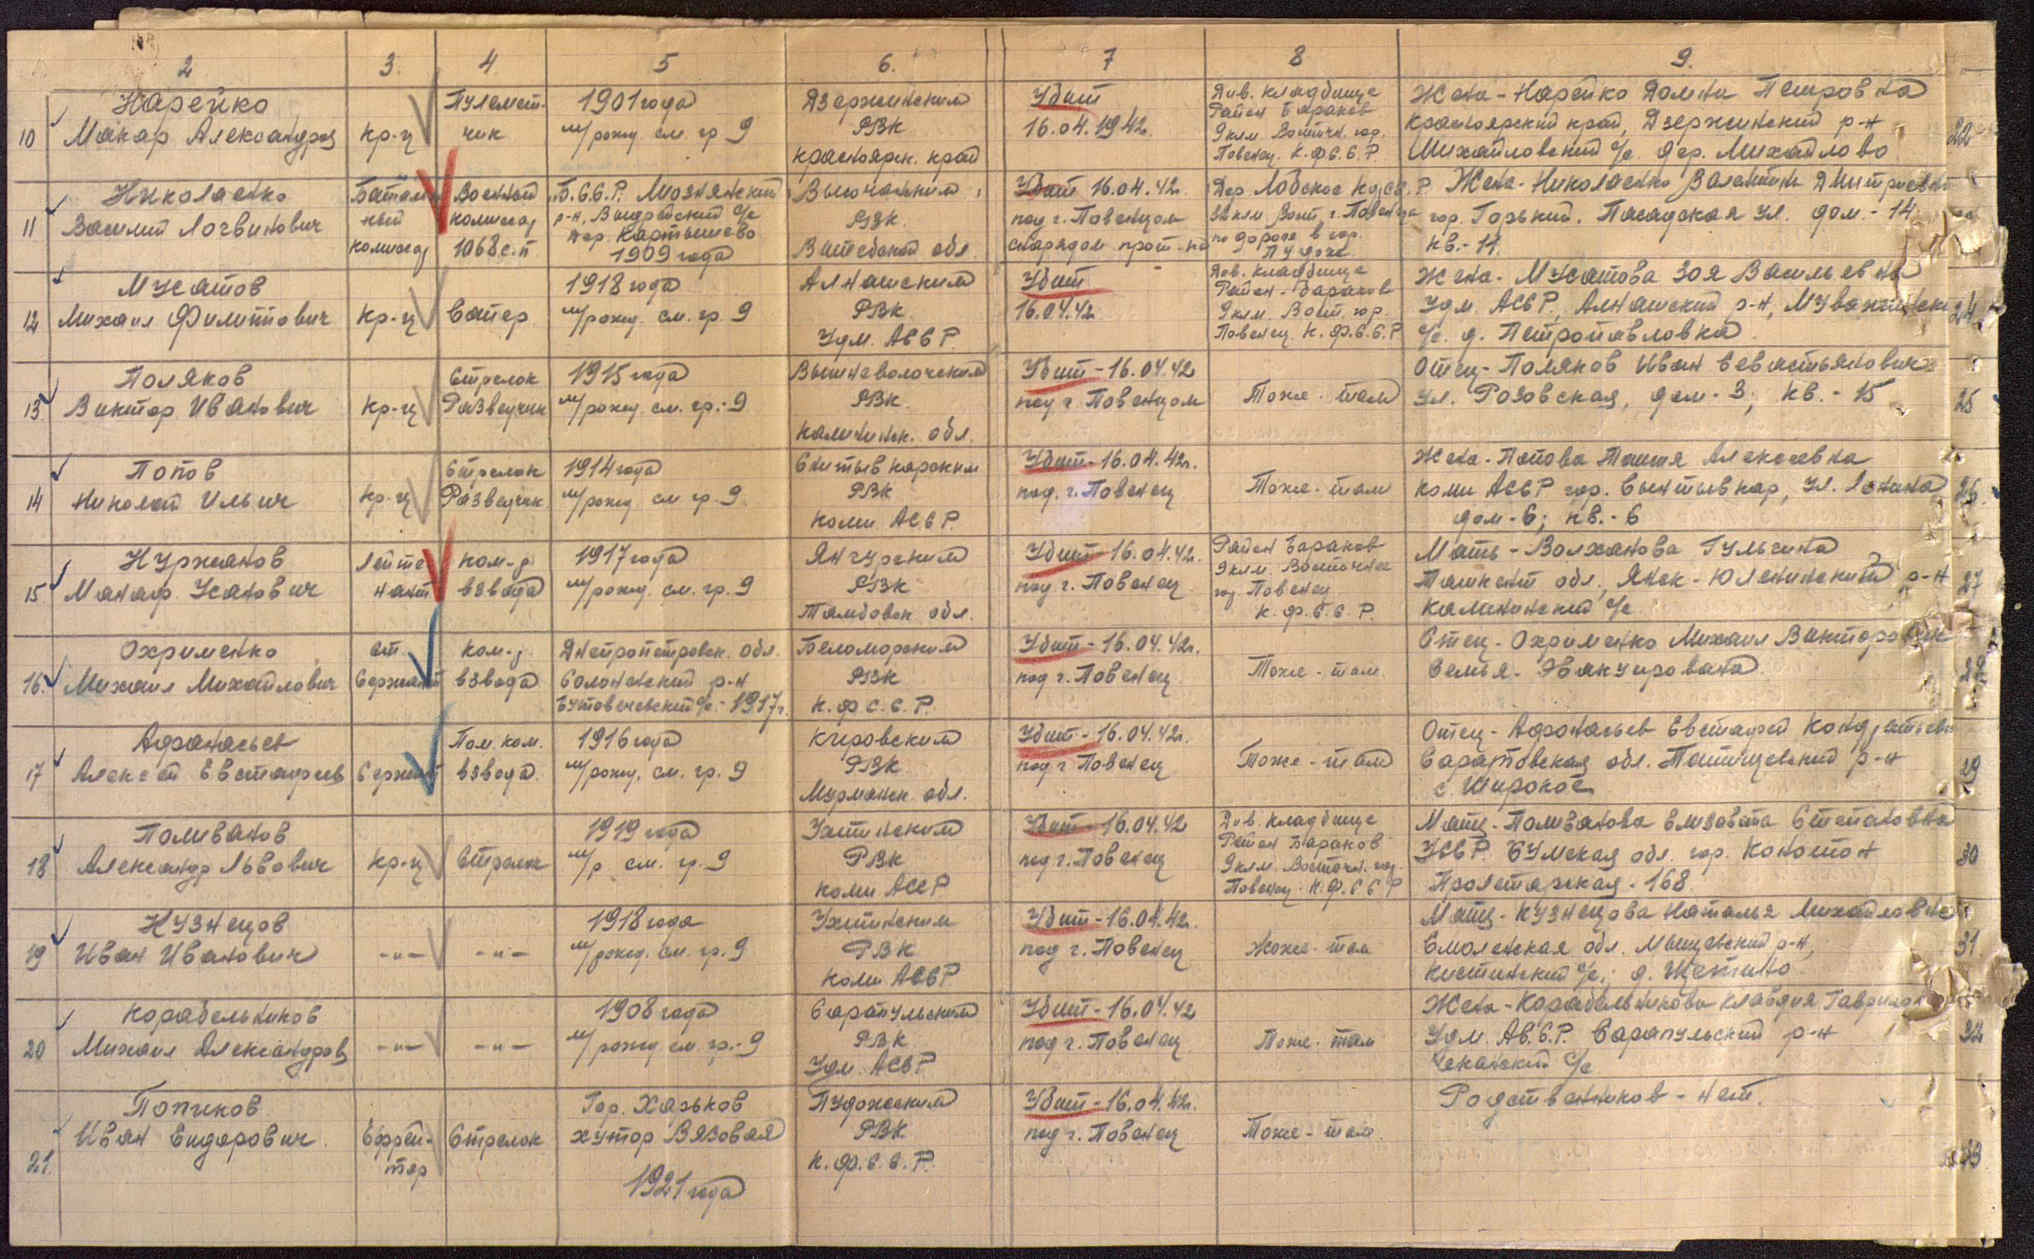 2 3. 4 5 6. 7 8 9.
10 Нарейко
Макар Александров
кр-ц
Пулемет-
чик
1901 года
м/рожд. см. гр. 9
Дзержинским
РВК
Красноярск. край
Убит
16.04.1942.
Див. кладбище
Район Бараков
9 клм. Восточн. гор.
Повенец К.Ф.С.С.Р.
Жена - Нарейко Домна Петровна
Красноярский край, Дзержинский р-н
Михайловский с/с. дер. Михайлово
22
11 Николаенко
Василий Логвинович
Батальон
ный
комиссар
Военный
комиссар
1068 с.п.
Б.С.С.Р.
1909 года
РВК.
Витебской обл.
Убит 16.04.42.
под г. Повенцом
снарядом прот-ка
Дер. Лобское
по дороге в гор.
Жена - Николаенко Валентина Дмитриевна
гор. Горький. Посадская ул. дом. - 14
кв. - 11.
12 Мусатов
Михаил Филиппович
кр-ц
Сапер.
1918 года
м/рожд. см. гр. 9
Алнашским
РВК
Удм. АССР.
Убит
16.04.42
Див. кладбище
Район - Бараков
9 клм. Вост. гор.
Повенец К.Ф.С.С.Р.
Жена - Мусатова Зоя Васильевна
Удм. АССР, Алнашский р-н,
с/с. д. Петропавловка.
24
13 Поляков
Виктор Иванович
кр-ц
Стрелок
Разведчик
1915 года
м/рожд. см. гр. - 9
Вышневолочским
РВК.
Калининск. обл.
Убит - 16.04.42
под г. Повенцом
Тоже - там
Отец - Поляков Иван Севастьянович
ул. Розовская, дом - 3; кв. - 15
25
14 Попов
Николай Ильич
кр-ц
Стрелок
Разведчик
1914 года
м/рожд. см гр. 9.
Сыктывкарским
РВК
Коми АССР.
Убит - 16.04.42г.
под. г. Повенец
Тоже - там
Жена - Попова Таисия Алексеевна
Коми АССР гор. Сыктывкар, ул. Ленина
дом - 6; кв. - 6
26
15. Нуржанов
Манаф Усанович
Лейте
нант
ком-р
взвода
1917 года
м/рожд. см. гр. 9
РВК
Тамбовск. обл.
Убит - 16.04.42г.
под г. Повенец
Район Бараков
9 клм. Восточнее
гор. Повенец
К.Ф.С.С.Р.
Мать - Волжанова Гульсина
Ташкент обл., Янги-Юленинский р-н
Калининский с/с
27
16. Охрименко
Михаил Михайлович
ст.
Сержант
ком-р
взвода
Днепропетровск. обл.
Солонянский р-н
1917г.
Беломорским
РВК
К.Ф.С.С.Р.
Убит - 16.04.42г.
под г. Повенец
Тоже - там
Отец - Охрименко Михаил Викторович
Семья - Эвакуирована
28
17 Афанасьев
Алексей Евстафьев
Сержант
Пом. ком.
взвода.
1916 года
м/рожд. см. гр. 9
Кировским
РВК
Мурманск. обл.
Убит - 16.04.42г.
под г Повенец
Тоже - там
Отец - Афанасьев Евстафий Кондратьев
Саратовская обл.
с. Широкое
29
18 Поливанов
Александр Львович
кр-ц
Стрелок
1919 года
м/р см. гр. 9
Ухтинским
РВК
Коми АССР
Убит - 16.04.42
под г. Повенец
Див. кладбище
Район Бараков
9 клм. Восточн. гор.
Повенец К.Ф.С.С.Р
Мать - Поливанова Елизавета Степановна
УССР. Сумская обл. гор. Конотоп
Пролетарская - 168.
30
19 Кузнецов
Иван Иванович
-"-
-"-
1918 года
м/рожд. см. гр. 9
Ухтинским
РВК
Коми АССР
Убит - 16.04.42г.
под г. Повенец
Тоже - там
Мать - Кузнецова Наталья Михайловна
Смоленская обл. Мещевский р-н,
31
20 Корабельников
Михаил Александров
-"-
-"-
1908 года
м/рожд см. гр. - 9
Сарапульским
РВК.
Удм. АССР
Убит - 16.04.42
под г. Повенец
Тоже - там
Жена - Корабельникова Клавдия Гаврилов
Удм. АССР. Сарапульский р-н
32
21. Попиков
Иван Сидорович
Ефрей-
тор
Стрелок
Гор. Харьков
хутор Вязовая
1921 года
Пудожским
РВК
К.Ф.С.С.Р.
Убит - 16.04.42г.
под г. Повенец
Тоже - там.
Родственников - нет.
33